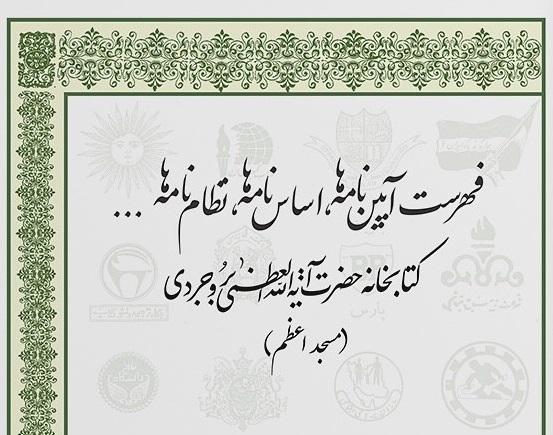 فهرست آیین نامه‌ها، اساس نامه‌ها، نظام نامه‌ها ...
کتابخانه حضرت آیة الله العظمی بروجردی
(مسجد اعظم)
پارس